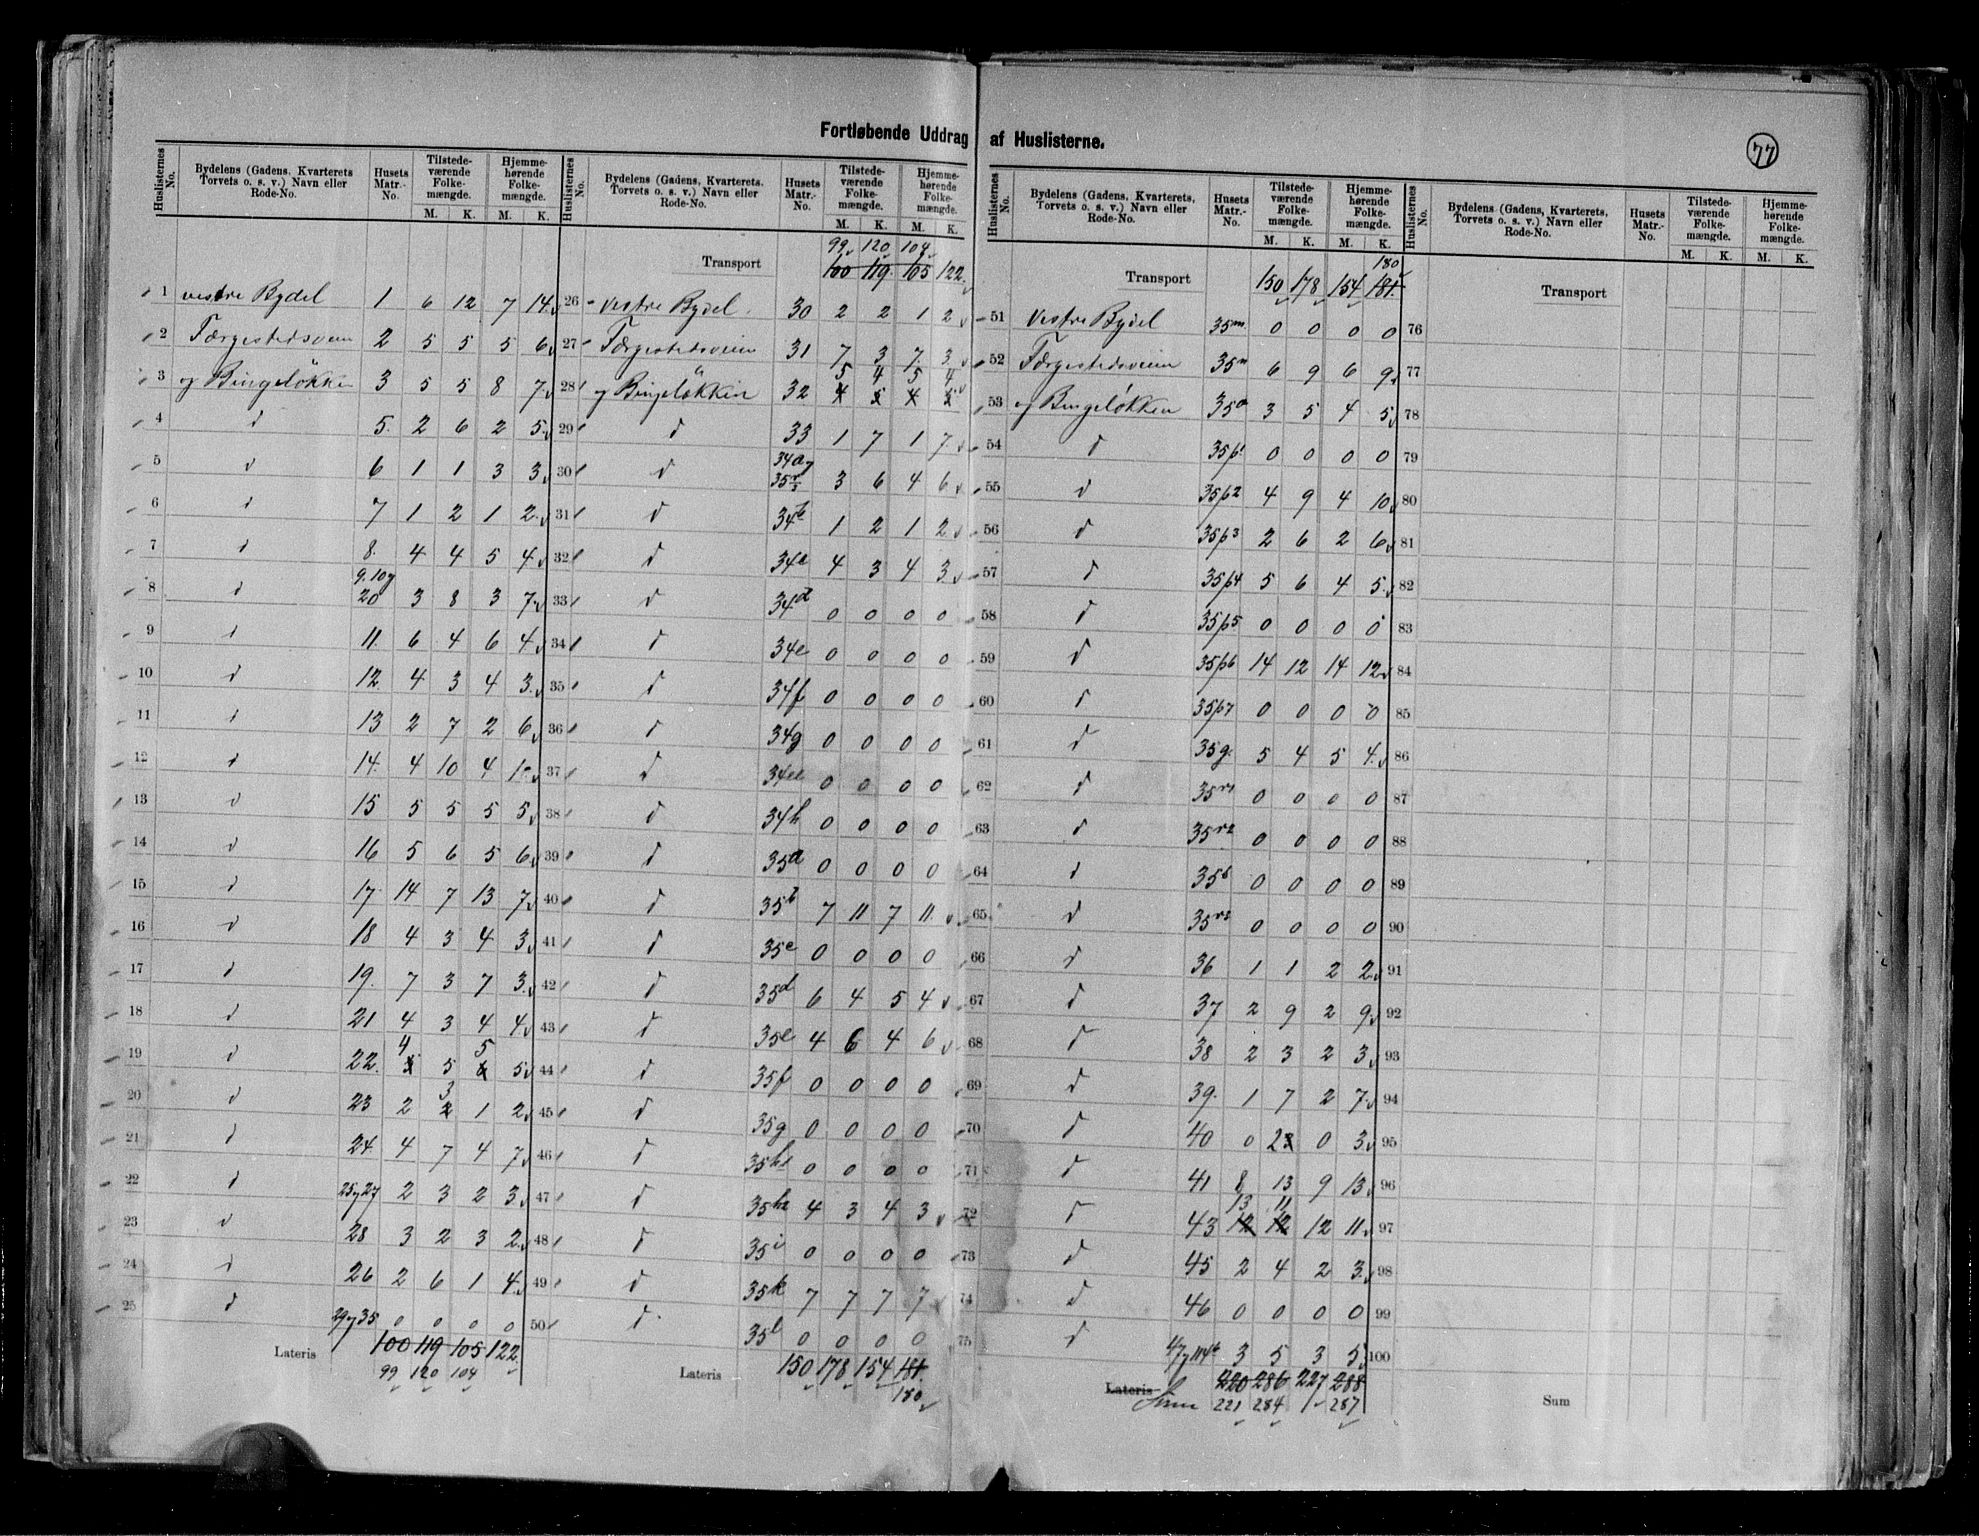 Fortløbende Uddrag af Huslisterne.
77
Huslisternes No. | Bydelens (Gadens, Kvarterets Torvets o. s. v.) Navn eller Rode-No. | Husets Matr.-No. | Tilstedeværende Folkemængde. M. K. | Hjemmehørende Folkemængde. M. K.
1 vestre Bydel 1 6 12 7 14
2 Færgestedsveien 2 5 5 5 6
3 og Bingeløkken 3 5 5 8 7
4 d 5. 2 6 2 5
5 d 6 1 1 3 3
6 d 7 1 2 1 2
7 d 8. 4 4 5 4
8 d 9. 10 og 20 3 8 3 7
9 d 11. 6 4 6 4
10 d 12. 4 3 4 3
11 d 13 2 7 2 6
12 d 14. 4 10 4
13 d 15 5 5 5 5
14 d 16 5 6 5 6
15 d 17. 14 7 13 7
16 d 18 4 3 4 3
17 d 19. 7 3 7 3
18 d 21 4 3 4 4
19 d 22. 4 5 5 5
20 d 23 2 3 1 2
21 d 24 4 7 4 7
22 d 25 og 27 2 3 2 3
23 d 28 3 2 3 2
24 d 26 2 6 1 4
25 d 29 og 35 0 0 0 0
Lateris 100 119 105 122
99 120 104
Huslisternes No. | Bydelens (Gadens, Kvarterets, Torvets o. s. v.) Navn eller Rode-No. | Husets Matr.-No. | Tilstedeværende Folkemængde. M. K. | Hjemmehørende Folkemængde. M. K.
99 120 104
Transport 100 119 105 122
26 vestre Bydel 30 2 2 1 2
27 Færgestedsveien 31 7 3 7 3
28 og Bingeløkken 32 5 4 5 4
29 d 33 1 7 1 7
30 d 34a og 35 3 6 4 6
31 d 34b 1 2 1 2
32 d 34c 4 3 4 3
33 d 34d 0 0 0 0
34 d 34e 0 0 0 0
35 d 34f 0 0 0 0
36 d 34g 0 0 0 0
37 d 0 0 0 0
38 d 34h 0 0 0 0
39 d 35a 0 0 0 0
40 d 35b 7 11 7 11
41 d 35c 0 0 0 0
42 d 35d 6 4 5 4
43 d 35e 4 6 4 6
44 d 35f 0 0 0 0
45 d 35g 0 0 0 0
46 d 35h1 0 0 0 0
47 d 35h2 4 3 4 3
48 d 35i 0 0 0 0
49 d 35k 7 7 7 7
50 d 35l 0 0 0 0
Lateris 150 178 154 181
180
Huslisternes No. | Bydelens (Gadens, Kvarterets, Torvets o. s. v.) Navn eller Rode-No. | Husets Matr.-No. | Tilstedeværende Folkemængde. M. K. | Hjemmehørende Folkemængde. M. K.
180
Transport 150 178 154 181
51 Vestre Bydel 35m 0 0 0 0
52 Færgestedsveien 35n 6 9 6 9
53 og Bingeløkken 35o 3 5 4 5
54 d 35p1 0 0 0 0
55 d 35p2 4 9 4 10
56 d 35p3 2 6 2 6
57 d 35p4 5 6 4 5
58 d 35p5 0 0 0 0
59 d 35p6 14 12 14 12
60 d 35p7 0 0 0 0
61 d 35q. 5 4 5 4
62 d 35r1 0 0 0 0
63 d 35r2 0 0 0 0
64 d 35s 0 0 0 0
65 d 0 0 0 0
66 d 36 1 1 2 2
67 d 37 2 9 2 9
68 d 38 2 3 2 3
69 d 39. 1 7 2 7
70 d 40 0 2 0 3
71 d 41 8 13 9 13
72 d 43 13 11 12 11
73 d 45 2 4 2 3
74 d 46 0 0 0 0
75 d 47 og 114b 3 5 3 5
Lateris Sum 220 286 227 288
221 284 287
Huslisternes No. | Bydelens (Gadens, Kvarterets, Torvets o. s. v.) Navn eller Rode-No. | Husets Matr.-No. | Tilstedeværende Folkemængde. M. K. | Hjemmehørende Folkemængde. M. K.
Transport
76
77
78
79
80
81
82
83
84
85
86
87
88
89
90
91
92
93
94
95
96
97
98
99
100
Sum